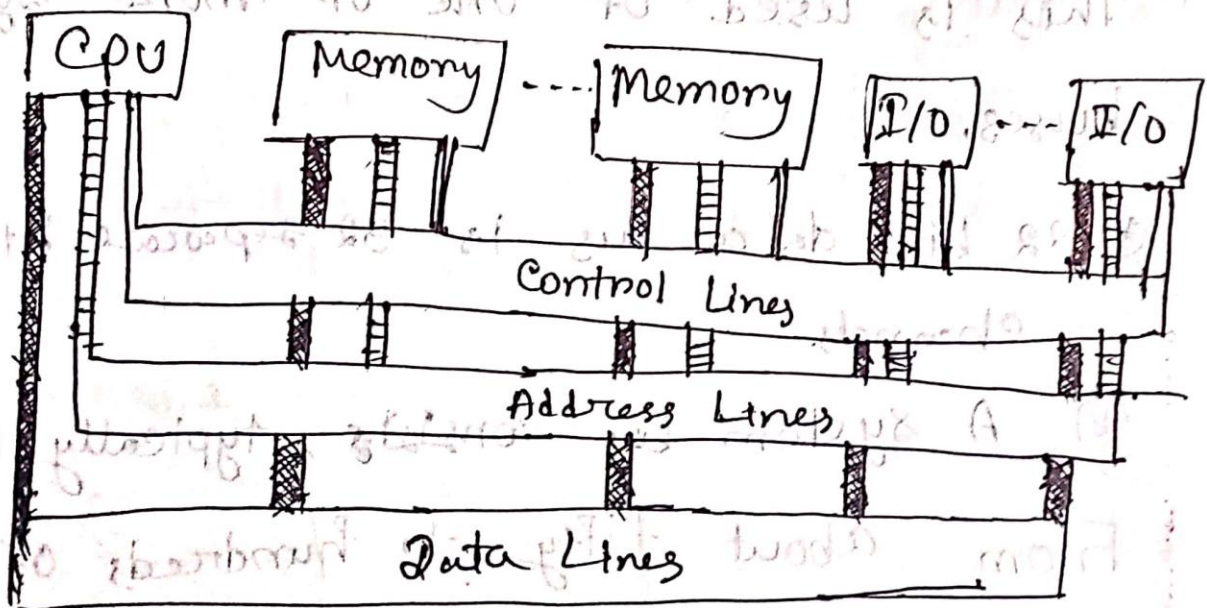 CPU
Memory ---- Memory
I/O ---- I/O
Control Lines
Address Lines
Data Lines